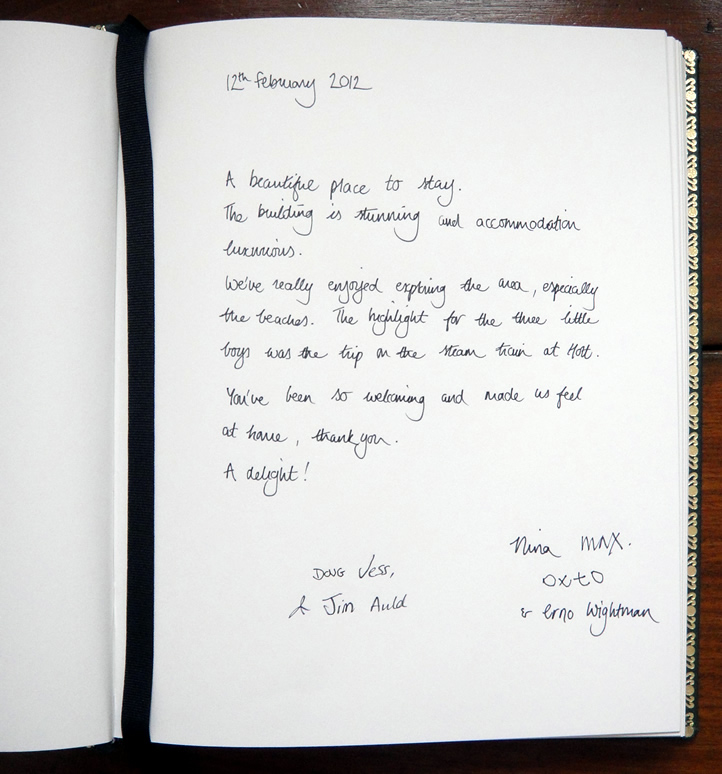 12th February 2012
A beautiful place to stay.
The building is stunning and accommodation
luxurious.
We've really enjoyed exploring the area, especially
the beaches. The highlight for the three little
boys was the trip on the steam train at Holt.
You've been so welcoming and made us feel
at home, thank you.
A delight!
Doug Jess,
& Jim Auld
Nina MAX.
Oxto
& Erno Wightman